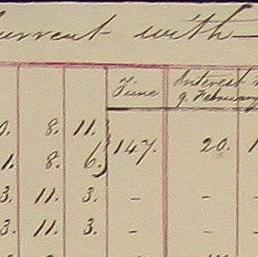 Current with
Time Interest
9. February
0. 8. 11.
1. 8. 6. 147. 20. 1
3. 11. 3. - -
3. 11. 3. - -